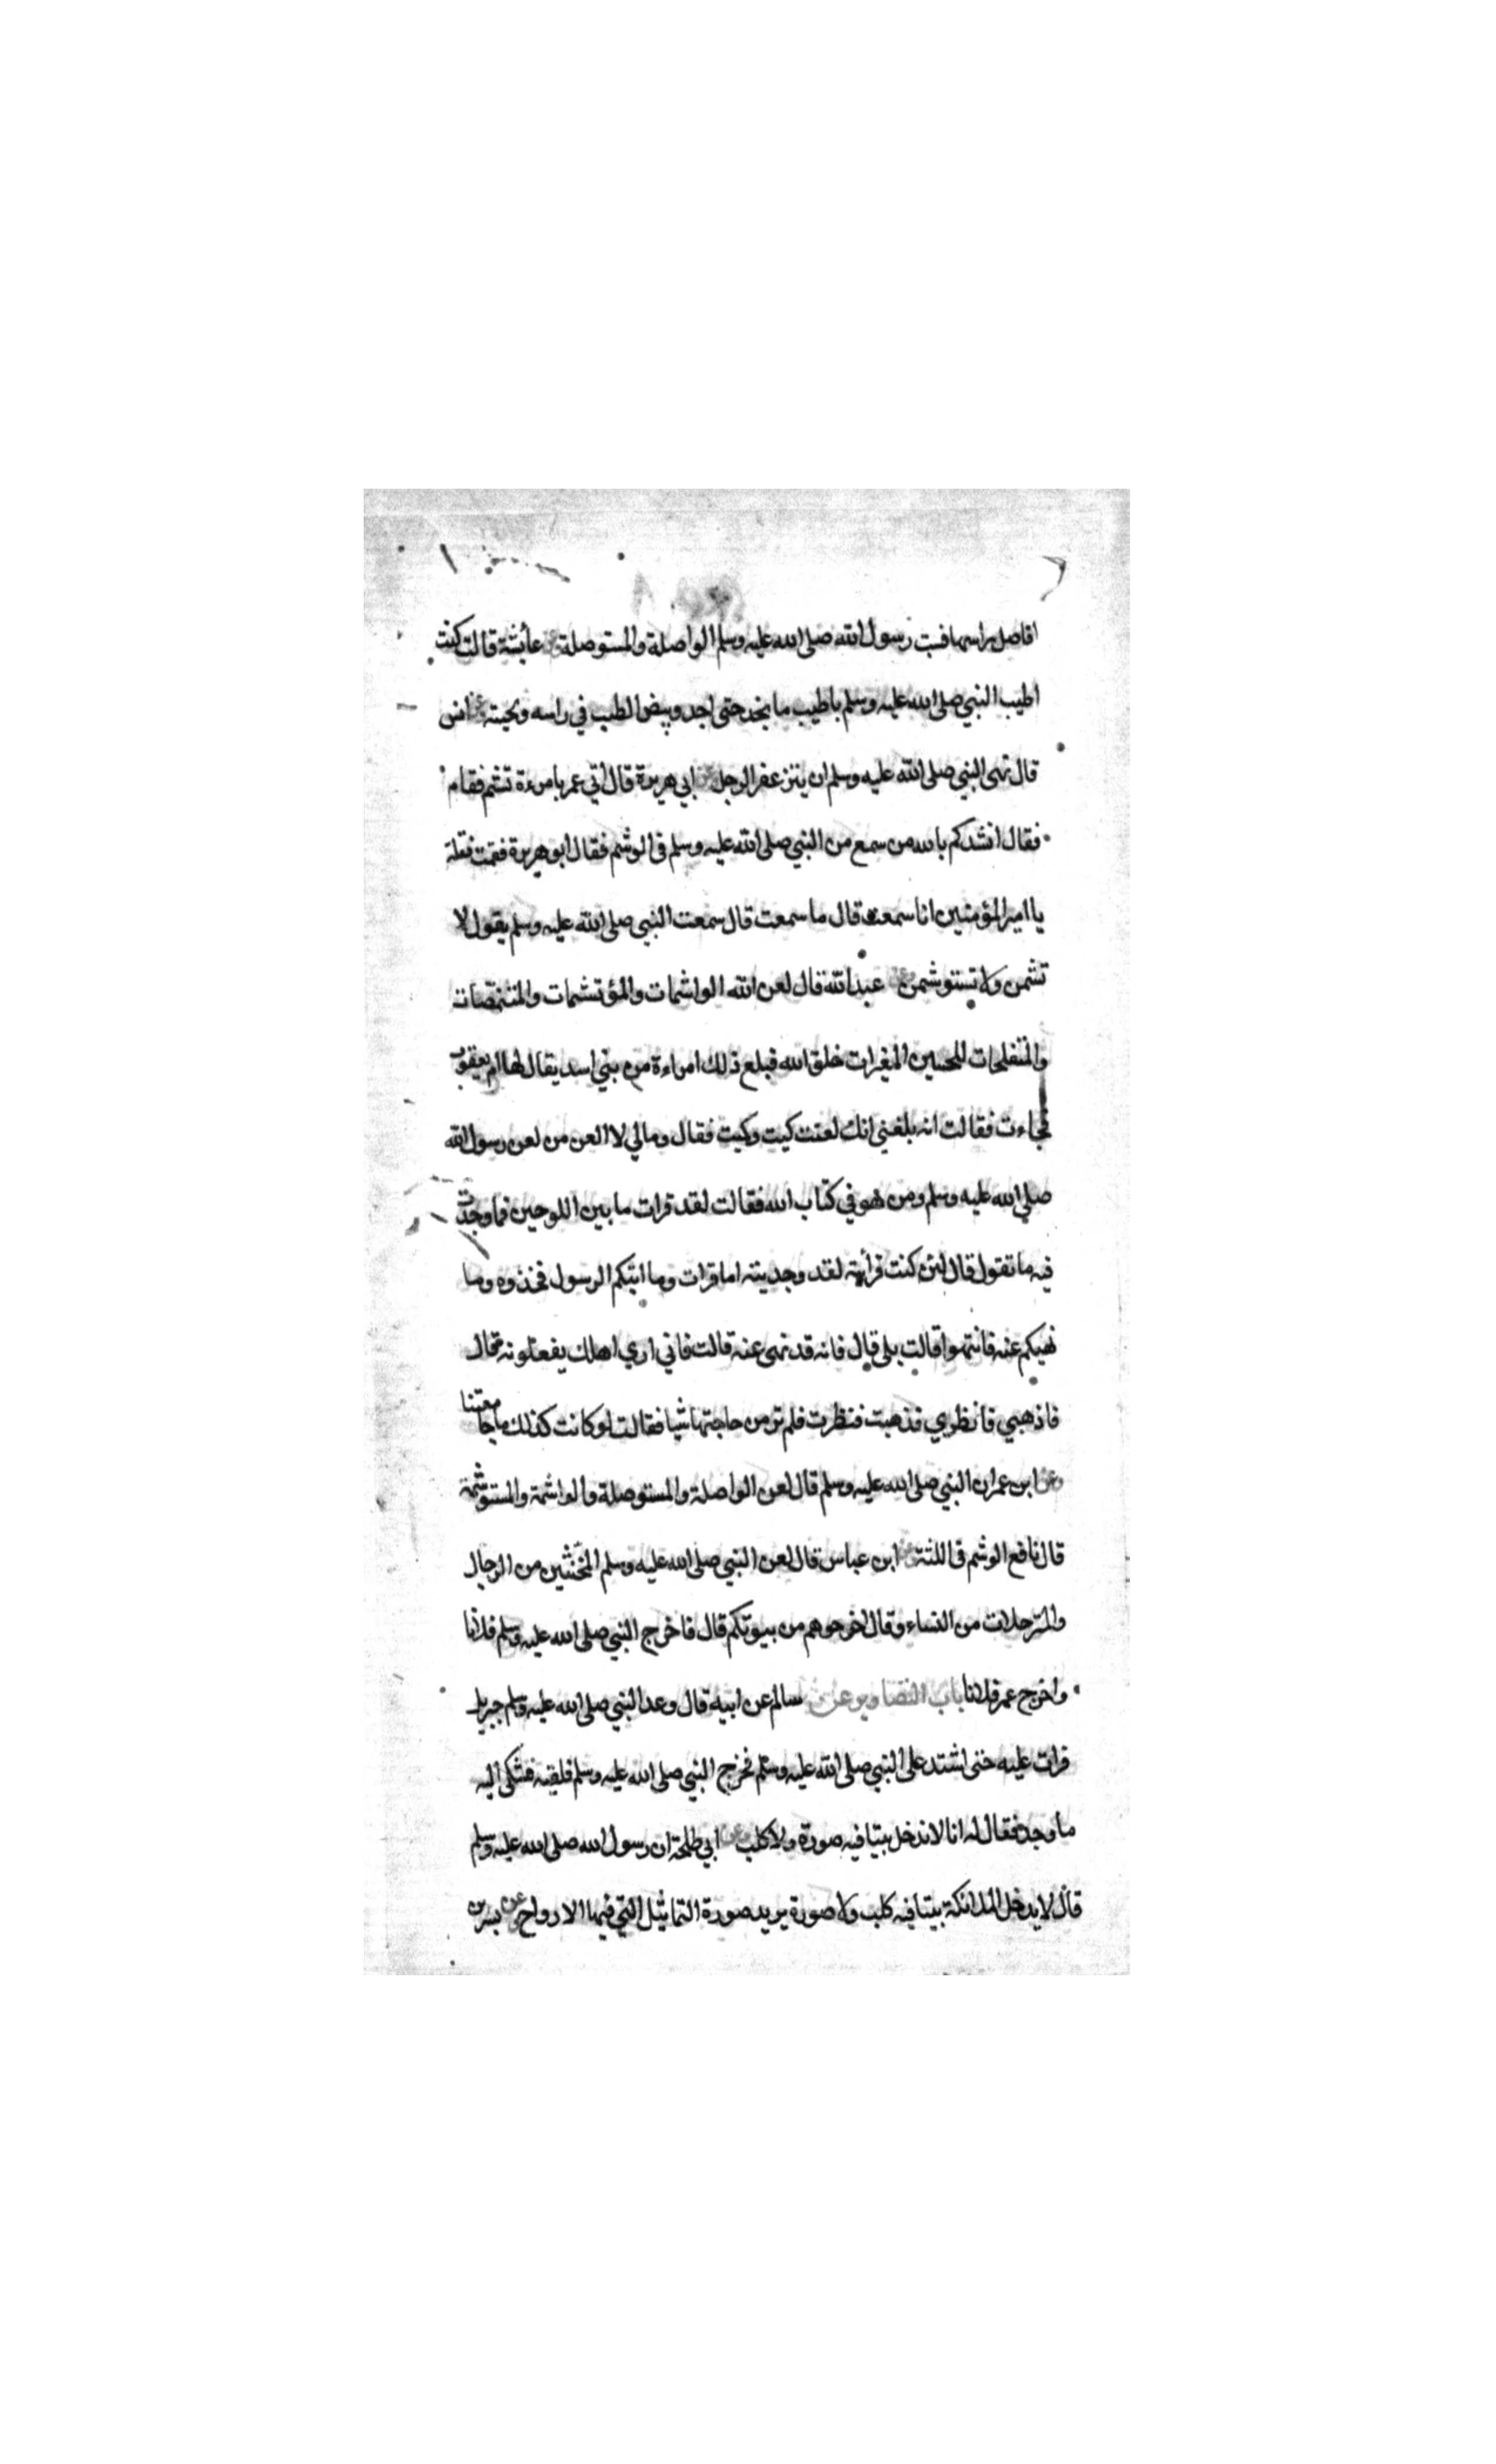 افاصل براسها فسب رسول الله صلى الله عليه وسلم الواصلة والمستوصلة عن عائشة قالت كنت
اطيب النبي صلى الله عليه وسلم باطيب ما نجد حتى اجد وبيض الطيب في راسه ولحيته عن انس
قال نهى النبي صلى الله عليه وسلم ان يتزعفر الرجل عن ابي هريرة قال أتي عمر بامرءة تشم فقام
فقال انشدكم بالله من سمع من النبي صلى الله عليه وسلم في الوشم فقال ابو هريرة فقمت فقلت
يا امير المؤمنين انا سمعت قال ما سمعت قال سمعت النبي صلى الله عليه وسلم يقول لا
تشمن ولا تستوشمن وعن عبد الله قال لعن الله الواشمات والمؤتشمات والمتنمصات
والمتفلجات للحسن المغيرات خلق الله فبلغ ذلك امراءة من بني اسد يقال لها ام يعقوب
فجاءت فقالت انه بلغني انك لعنت كيت وكيت فقال ومالي لا العن من لعن رسول الله
صلى الله عليه وسلم ومن هو في كتاب الله فقالت لقد قرات ما بين اللوحين فما وجدت
فيه ما تقول قال لئن كنت قرأتيه لقد وجديته اما قرات وما اتيكم الرسول فخذوه وما
نهيكم عنه فانتهوا قالت بلى قال فانه قد نهى عنه قالت فاني اري اهلك يفعلونه قال
فاذهبي فانظري فذهبت فنظرت فلم تر من حاجتها شيا فقالت لو كانت كذلك ما جامعتنا
وعن ابن عمر ان النبي صلى الله عليه وسلم قال لعن الواصلة والمستوصلة والواشمة والمستوشمة
قال نافع الوشم في اللثة عن ابن عباس قال لعن النبي صلى الله عليه وسلم المخنثين من الرجال
والمترجلات من النساء وقال اخرجوهم من بيوتكم قال فاخرج النبي صلى الله عليه وسلم فلانا
واخرج عمر فلانا باب التصاوير عن سالم عن ابيه قال وعد النبي صلى الله عليه وسلم جبريل
فراث عليه حتى اشتد على النبي صلى الله عليه وسلم فخرج النبي صلى الله عليه وسلم فلقيه فشكى اليه
ما وجد فقال له انا لا ندخل بيتا فيه صورة ولا كلب وعن ابي طلحة ان رسول الله صلى الله عليه وسلم
قال لا يدخل الملائكة بيتا فيه كلب ولا صورة يريد صورة التماثيل التي فيها الارواح عن بسر بن